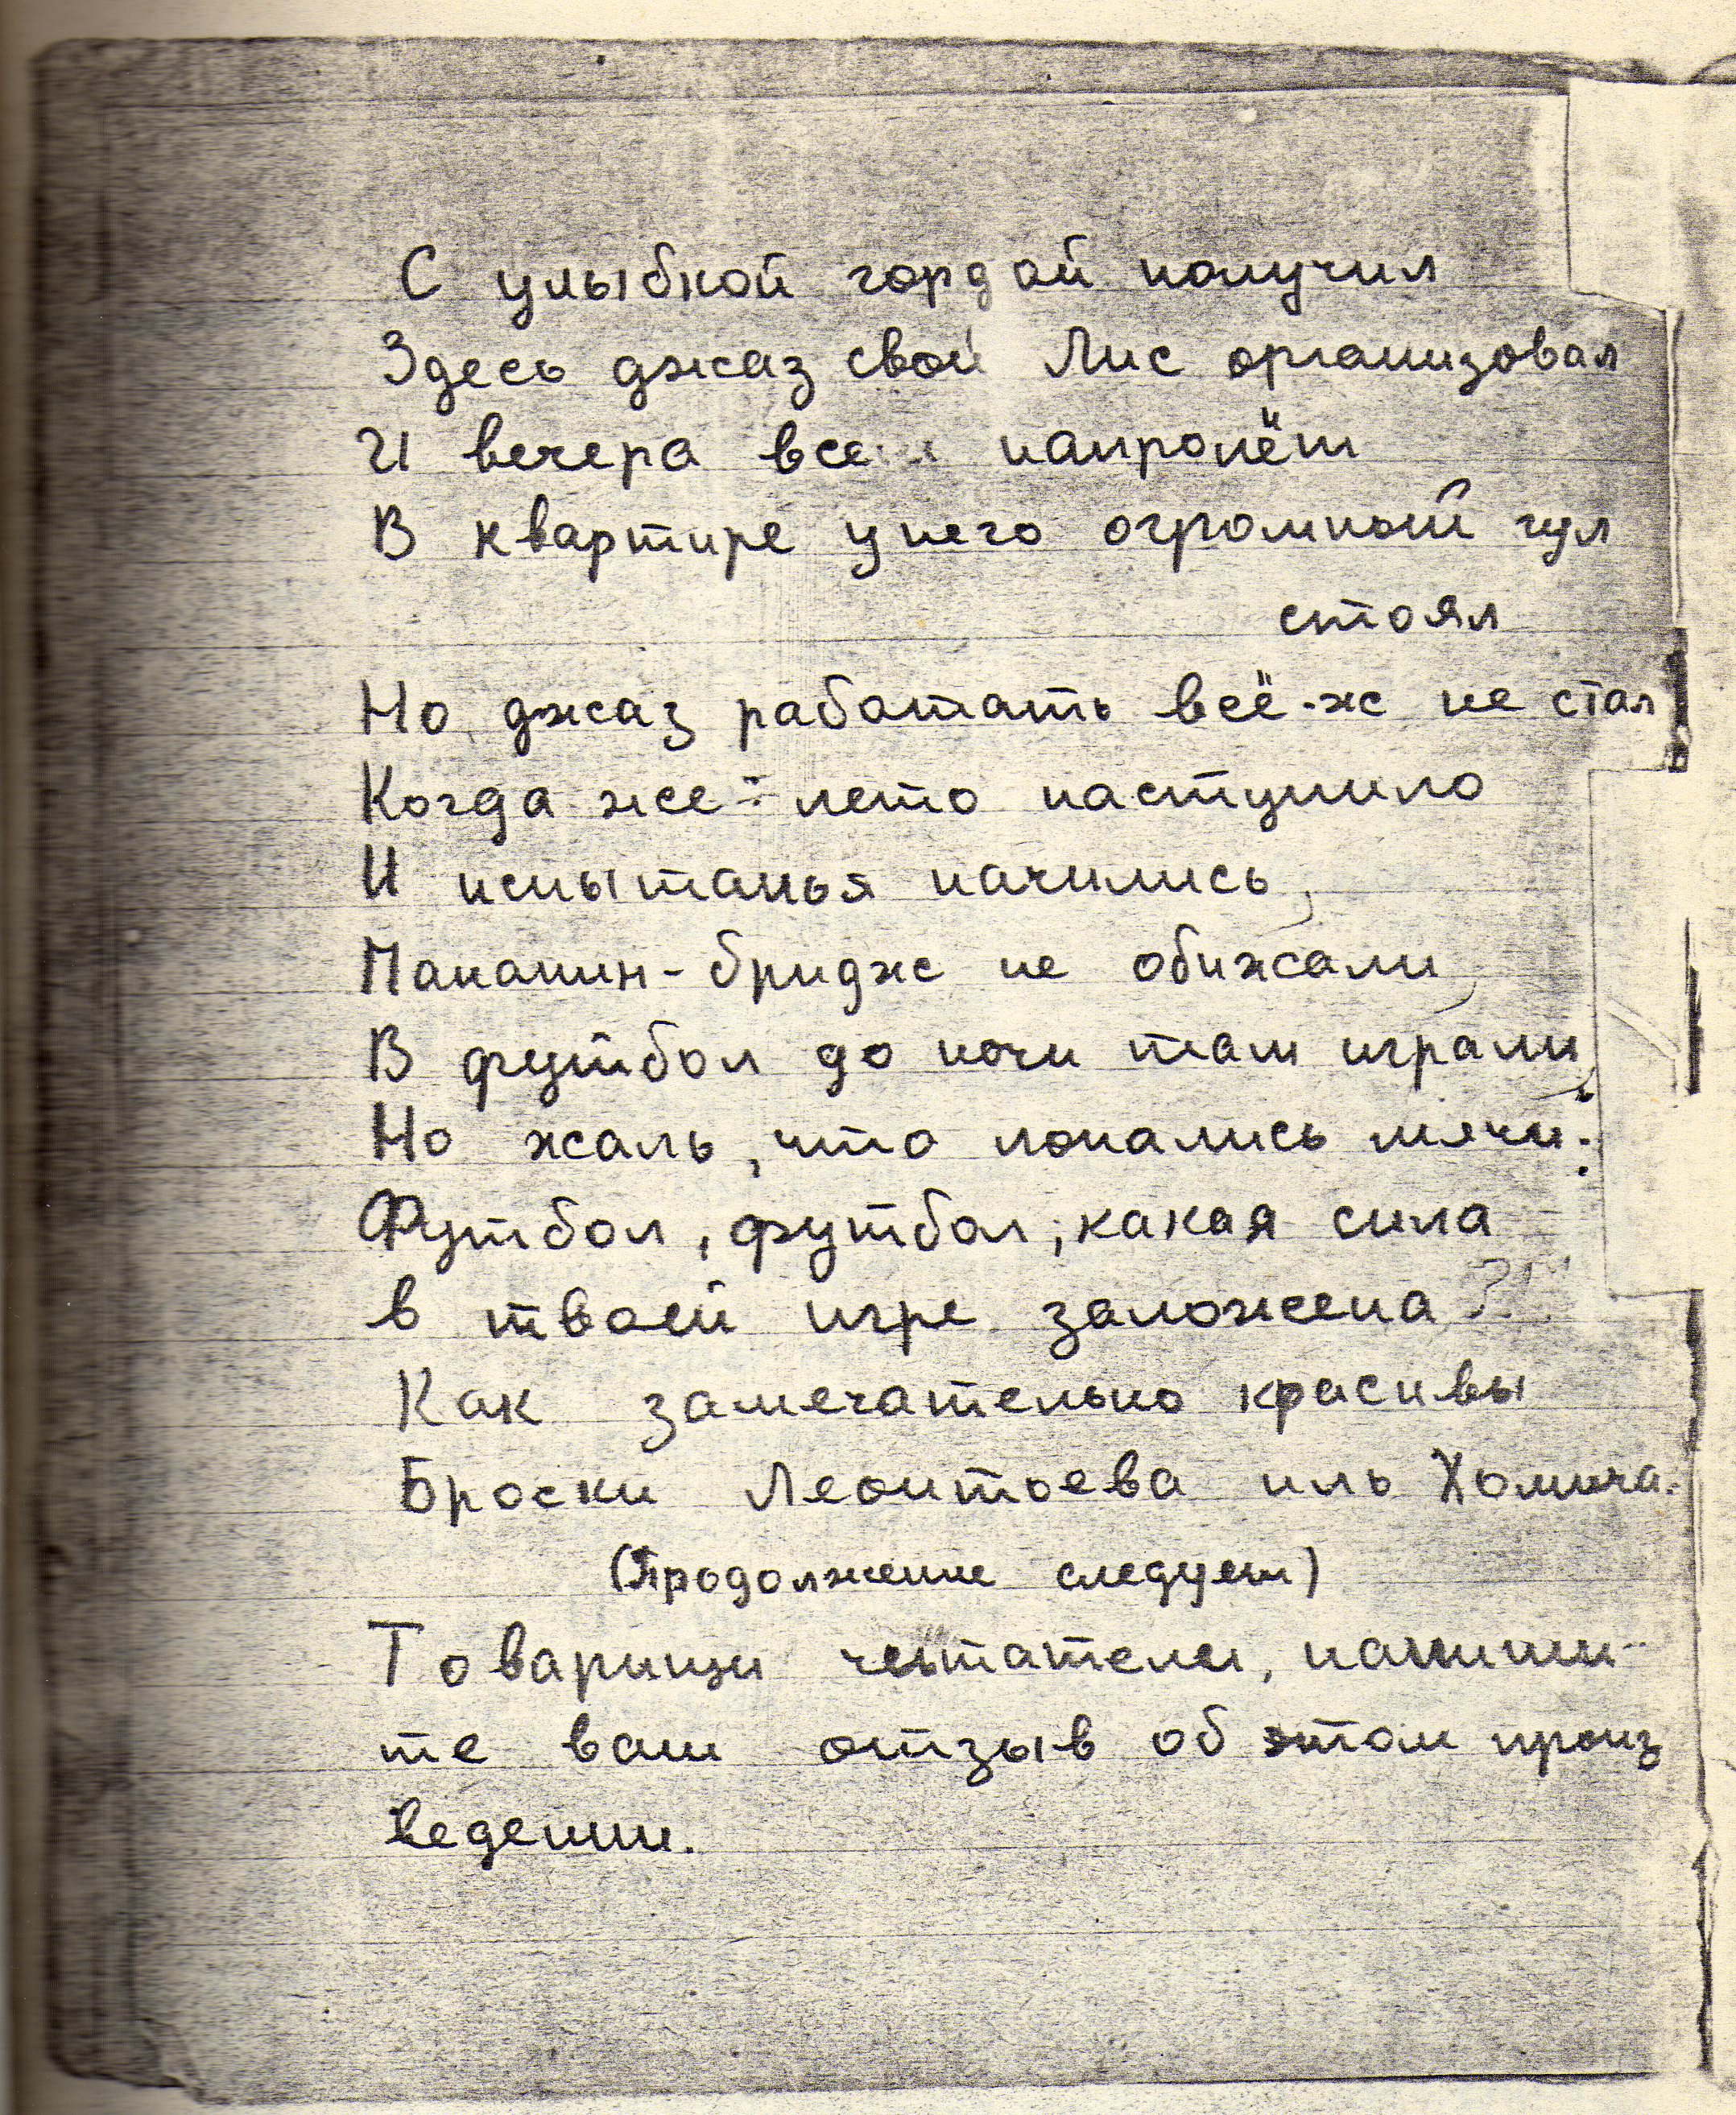 С улыбкой гордой получил
Здесь джаз свой Лис организовал
И вечера все напролёт
В квартире у него огромный гул
стоял
Но джаз работать всё-ж не стал
Когда же лето наступило
И испытанья начились,
Папанин-бридж не обижали,
В футбол до ночи там играли,
Но жаль, что попались мячи.
Футбол, футбол, какая сила
в твоей игре заложена?!
Как замечательно красивы
Броски Леонтьева иль Хомича.
(Продолжение следует)
Товарищи читатели, напиши-
те ваш отзыв об этом произ
ведении.